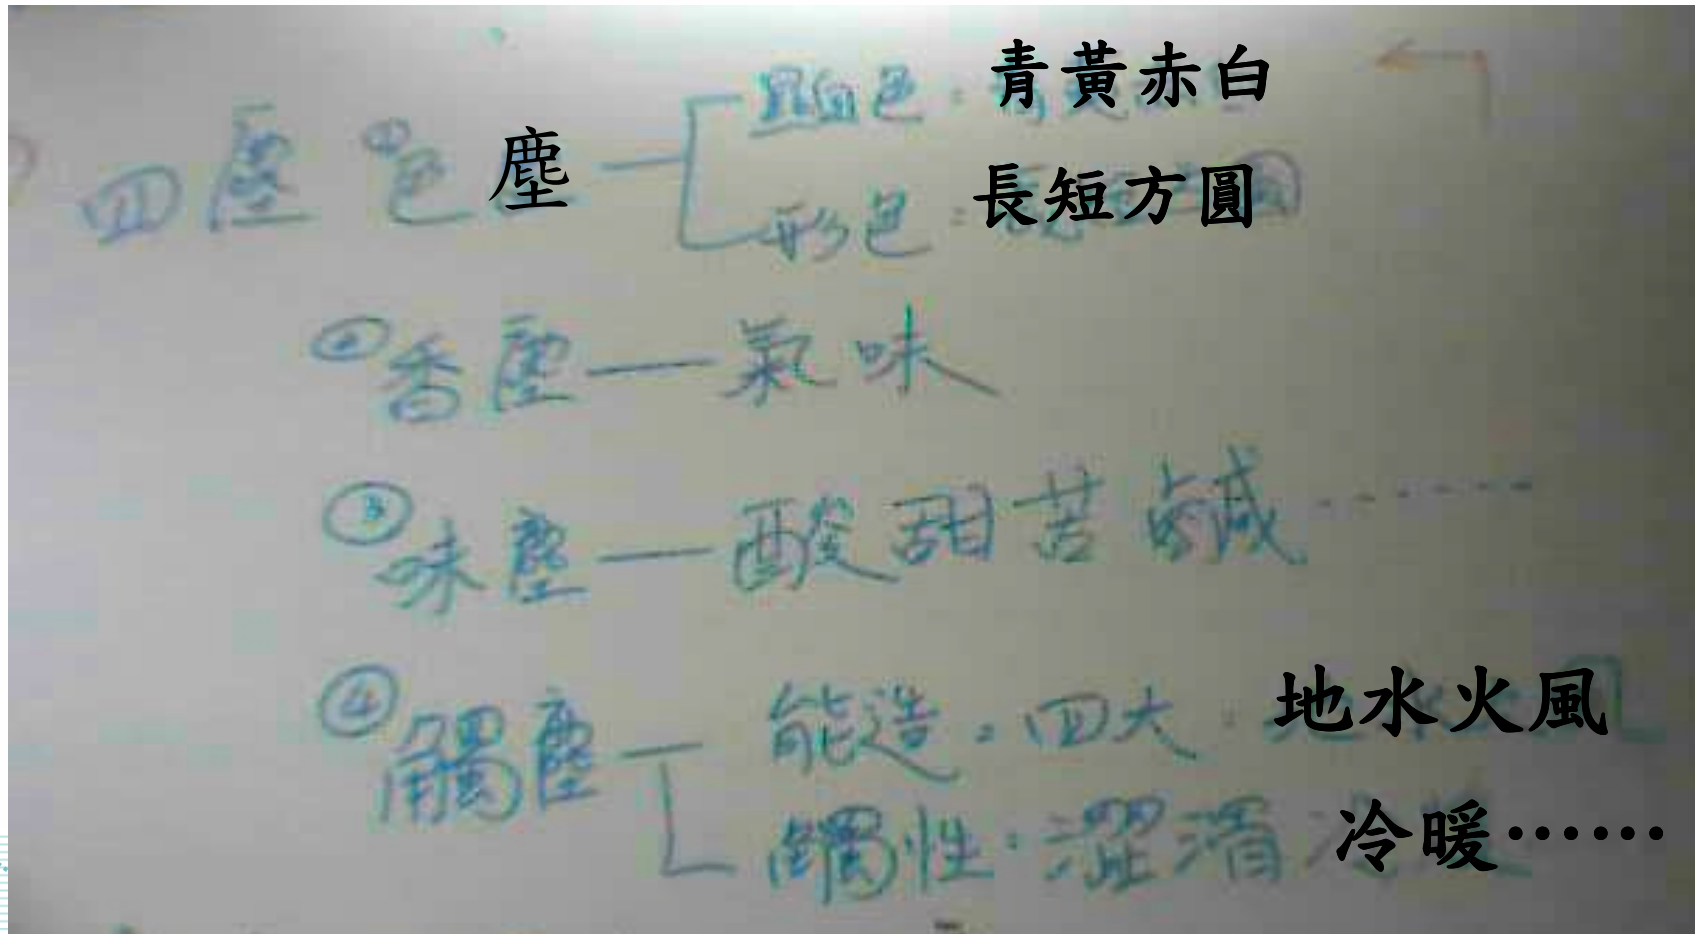 四塵 ①色塵 — 顯色：青黃赤白
形色：長短方圓
②香塵 — 氣味
③味塵 — 酸甜苦鹹……
④觸塵 — 能造：四大：地水火風
觸性：澀滑冷暖……